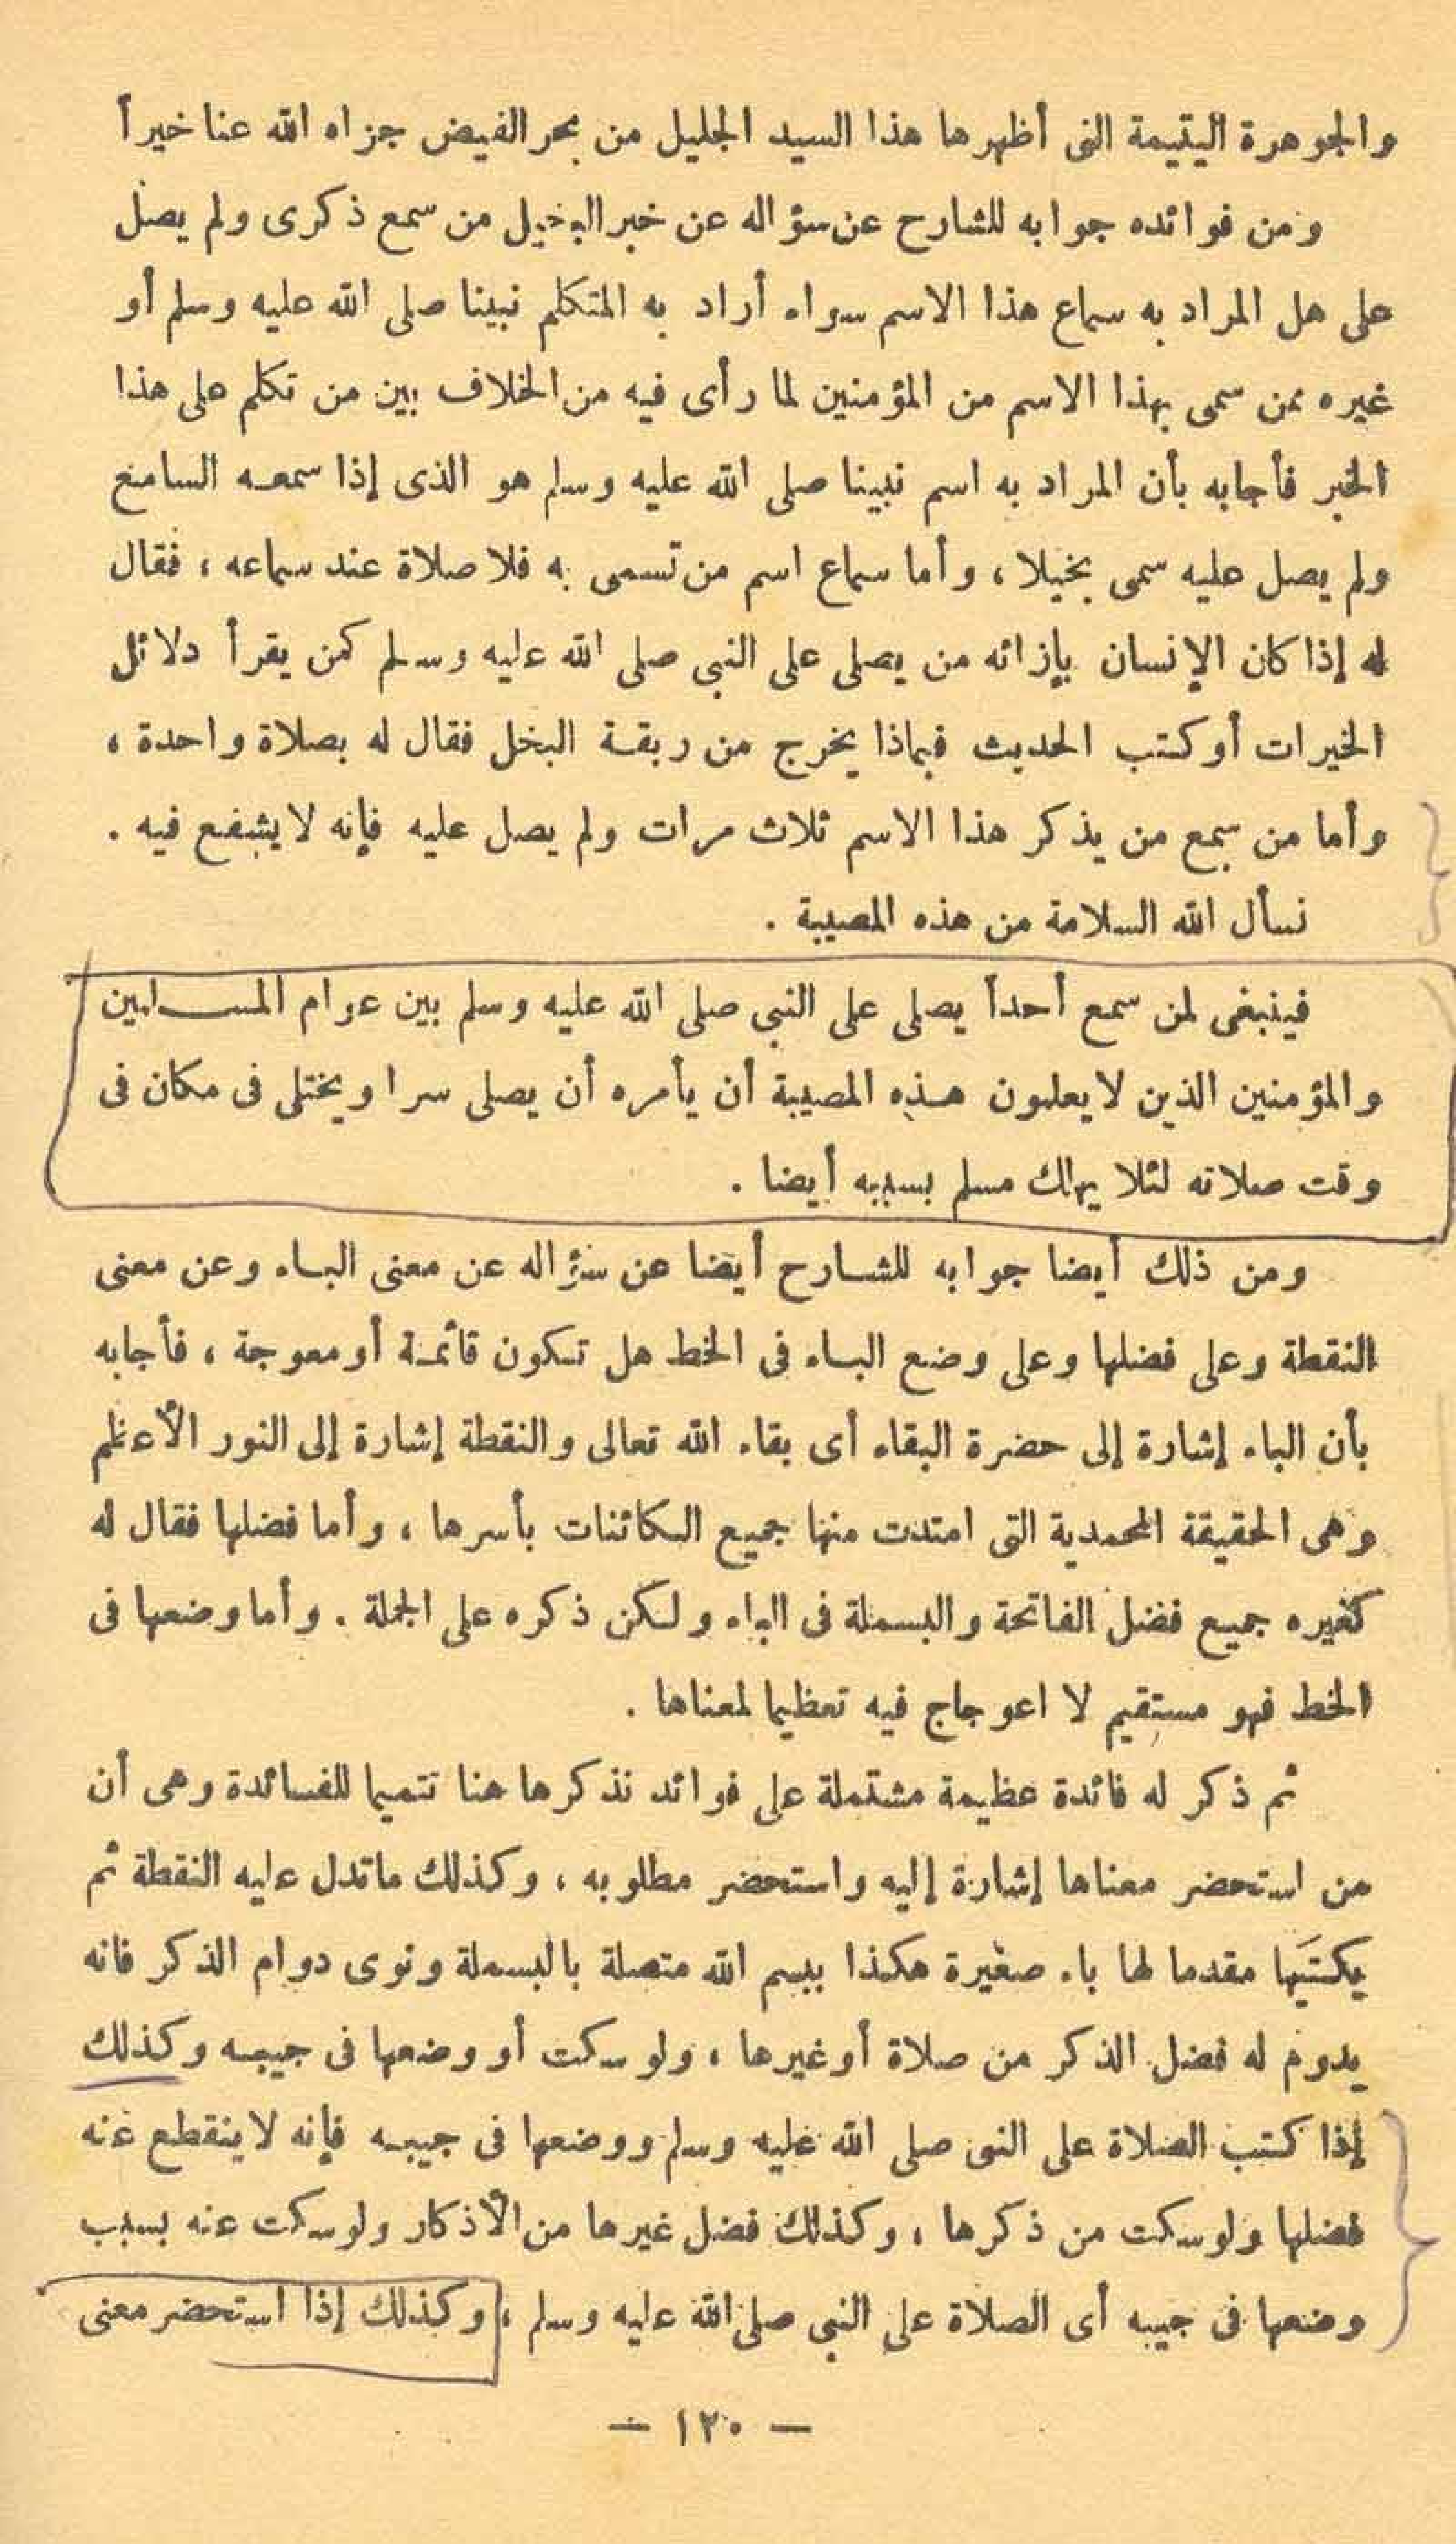 والجوهرة اليتيمة التى أظهرها هذا السيد الجليل من بحر الفيض جزاه الله عنا خيراً
ومن فوائده جوابه للشارح عن سؤاله عن خبر البخيل من سمع ذكرى ولم يصل
على هل المراد به سماع هذا الاسم سواء أراد به المتكلم نبينا صلى الله عليه وسلم أو
غيره ممن سمى بهذا الاسم من المؤمنين لما رأى فيه من الخلاف بين من تكلم على هذا
الخبر فأجابه بأن المراد به اسم نبينا صلى الله عليه وسلم هو الذى إذا سمعه السامع
ولم يصل عليه سمى بخيلا ، وأما سماع اسم من تسمى به فلا صلاة عند سماعه ، فقال
له إذا كان الإنسان بإزائه من يصلى على النبى صلى الله عليه وسلم كمن يقرأ دلائل
الخيرات أو كتب الحديث فبماذا يخرج من ربقة البخل فقال له بصلاة واحدة ،
وأما من سمع من يذكر هذا الاسم ثلاث مرات ولم يصل عليه فإنه لا يشفع فيه .
نسأل الله السلامة من هذه المصيبة .
فينبغى لمن سمع أحداً يصلى على النبى صلى الله عليه وسلم بين عوام المسلمين
والمؤمنين الذين لا يعلمون هذه المصيبة أن يأمره أن يصلى سرا ويختلى فى مكان فى
وقت صلاته لئلا يهلك مسلم بسببه أيضا .
ومن ذلك أيضا جوابه للشارح أيضا عن سؤاله عن معنى الباء وعن معنى
النقطة وعلى فضلها وعلى وضع الباء فى الخط هل تكون قائمة أو معوجة ، فأجابه
بأن الباء إشارة إلى حضرة البقاء أى بقاء الله تعالى والنقطة إشارة إلى النور الأعظم
وهى الحقيقة المحمدية التى امتدت منها جميع الكائنات بأسرها ، وأما فضلها فقال له
كغيره جميع فضل الفاتحة والبسملة فى الباء ولكن ذكره على الجملة . وأما وضعها فى
الخط فهو مستقيم لا اعوجاج فيه تعظيما لمعناها .
ثم ذكر له فائدة عظيمة مشتملة على فوائد نذكرها هنا تتميما للفائدة وهى أن
من استحضر معناها إشارة إليه واستحضر مطلوبه ، وكذلك ماتدل عليه النقطة ثم
يكتبَها مقدما لها باء صغيرة هكذا ببسم الله متصلة بالبسملة ونوى دوام الذكر فانه
يدوم له فضل الذكر من صلاة أو غيرها ، ولو سكت أو وضعها فى جيبه وكذلك
إذا كتب الصلاة على النبى صلى الله عليه وسلم ووضعها فى جيبه فإنه لا ينقطع عنه
فضلها ولو سكت من ذكرها ، وكذلك فضل غيرها من الأذكار ولو سكت عنه بسبب
وضعها فى جيبه أى الصلاة على النبى صلى الله عليه وسلم ، وكذلك إذا استحضر معنى
— ١٢٠ —